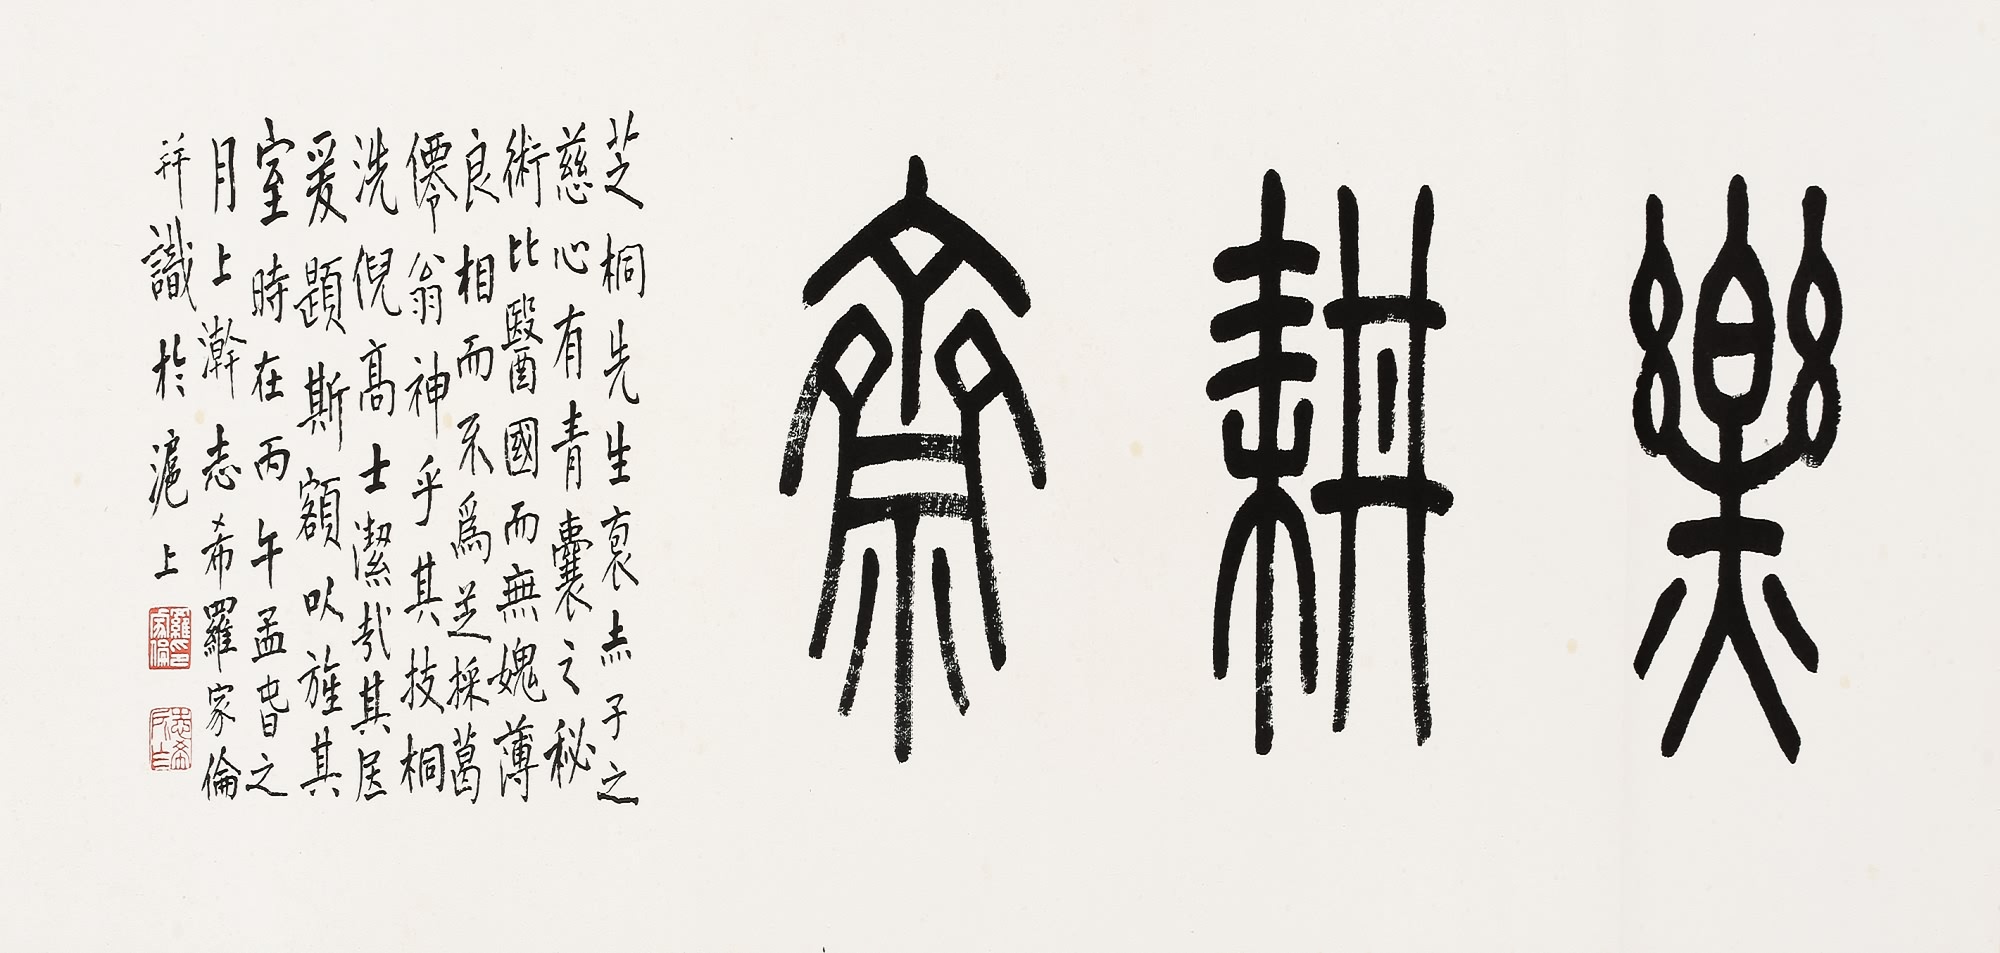 樂耕齋
芝桐先生赤子之
慈心有青囊之秘
術比醫國而無媿薄
良相而不爲芝採葛
僊翁神乎其技桐
洗倪高士潔哉其居
爰題斯額以旌其
室時在丙午孟旾之
月上澣志希羅家倫
并識於滬上
羅家倫印